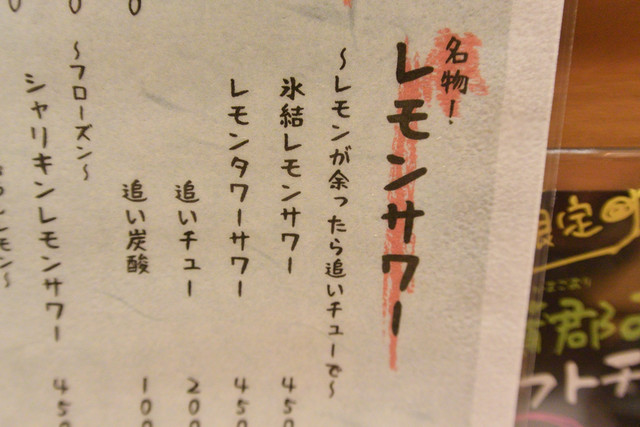 名物！
レモンサワー
〜レモンが余ったら追いチューで〜
氷結レモンサワー 450
レモンタワーサワー 450
追いチュー 200
追い炭酸 100
〜フローズン〜
シャリキンレモンサワー 450
レモン〜
限定
郡の
フトチ